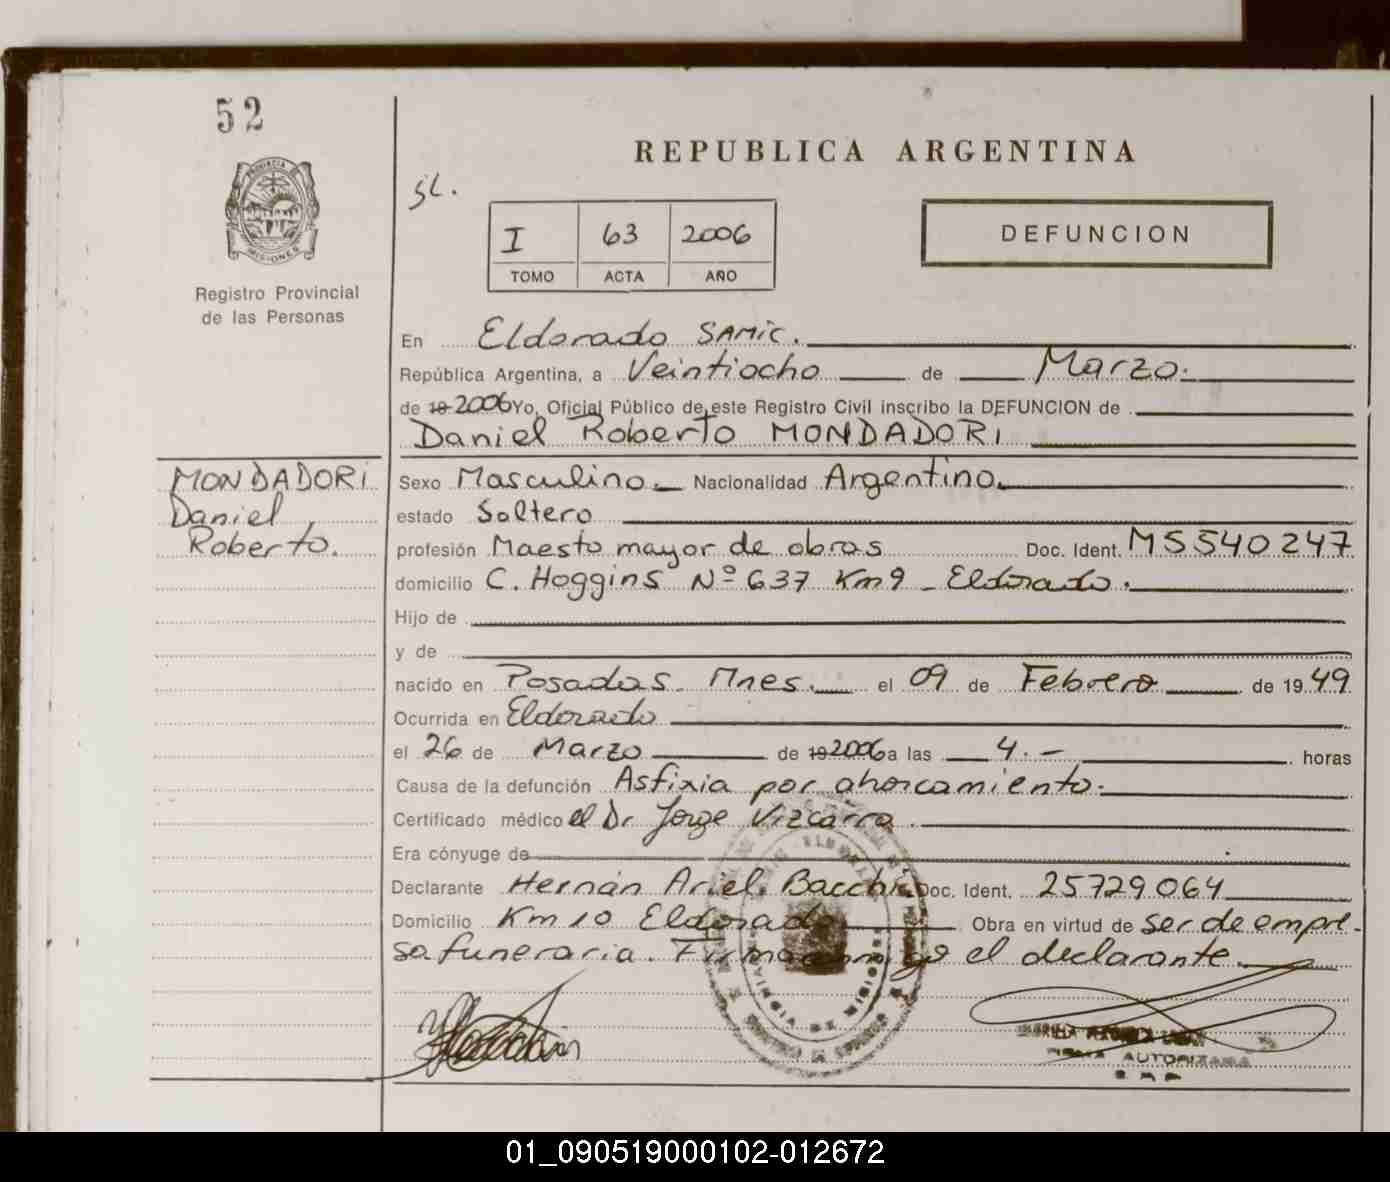 52
PROVINCIA
MISIONES
Registro Provincial
de las Personas
REPUBLICA ARGENTINA
SL.
I 63 2006
TOMO ACTA AÑO
DEFUNCION
En Eldorado SAMIC.
República Argentina, a Veintiocho de Marzo.
de 19 2006 Yo, Oficial Público de este Registro Civil inscribo la DEFUNCION de
Daniel Roberto MONDADORI
MONDADORI
Daniel
Roberto.
Sexo Masculino. Nacionalidad Argentino.
estado Soltero
profesión Maesto mayor de obras Doc. Ident. M5540247
domicilio C. Hoggins Nº 637 Km 9 - Eldorado.
Hijo de
y de
nacido en Posadas. Mnes. el 09 de Febrero de 19 49
Ocurrida en Eldorado
el 26 de Marzo de 19 2006 a las 4. - horas
Causa de la defunción Asfixia por ahorcamiento.
Certificado médico el Dr. Jorge Vizcarra.
Era cónyuge de
Declarante Hernán Ariel Bacchi Doc. Ident. 25729064
Domicilio Km 10 Eldorado Obra en virtud de ser de empre-
sa funeraria. Firma el declarante.
AUTORIZADA
01_090519000102-012672